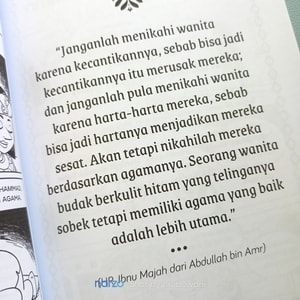 “Janganlah menikahi wanita
karena kecantikannya, sebab bisa jadi
kecantikannya itu merusak mereka;
dan janganlah pula menikahi wanita
karena harta-harta mereka, sebab
bisa jadi hartanya menjadikan mereka
sesat. Akan tetapi nikahilah mereka
berdasarkan agamanya. Seorang wanita
budak berkulit hitam yang telinganya
sobek tetapi memiliki agama yang baik
adalah lebih utama.”
(HR Ibnu Majah dari Abdullah bin Amr)
AGAMA